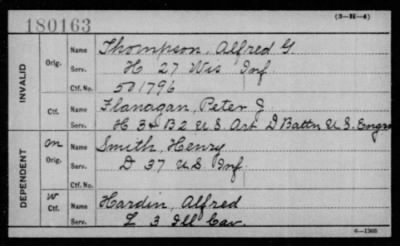 180163
(3-H-4)
INVALID
Orig.
Name Thompson, Alfred G.
Serv. H 27 Wis Inf
Ctf. No. 501796
Ctf.
Name Flanagan, Peter J
Serv. H 3 & B 2 U S. Art D Battn U S. Engrs
DEPENDENT
on
Orig.
Name Smith, Henry
Serv. D 37 U S Inf
Ctf. No.
W
Ctf.
Name Hardin, Alfred
Serv. L 3 Ill Cav.